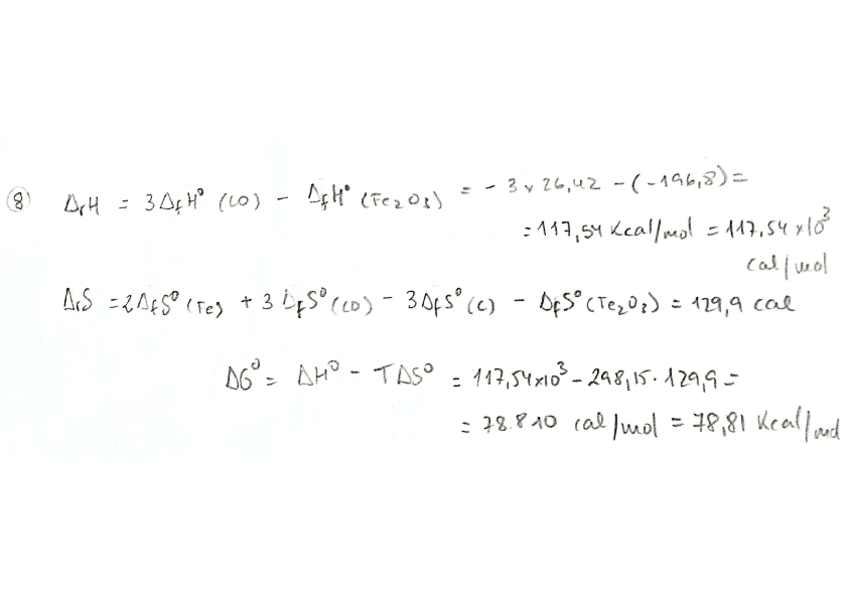 ⑧ ΔrH = 3ΔfH° (CO) - ΔfH° (Fe2O3) = - 3 x 26,42 - (-196,8) =
= 117,54 Kcal/mol = 117,54 x 10³
cal/mol
ΔrS = 2ΔfS° (Fe) + 3 ΔfS° (CO) - 3ΔfS° (C) - ΔfS° (Fe2O3) = 129,9 cal
ΔG° = ΔH° - TΔS° = 117,54x10³ - 298,15 · 129,9 =
= 78.810 cal/mol = 78,81 Kcal/mol